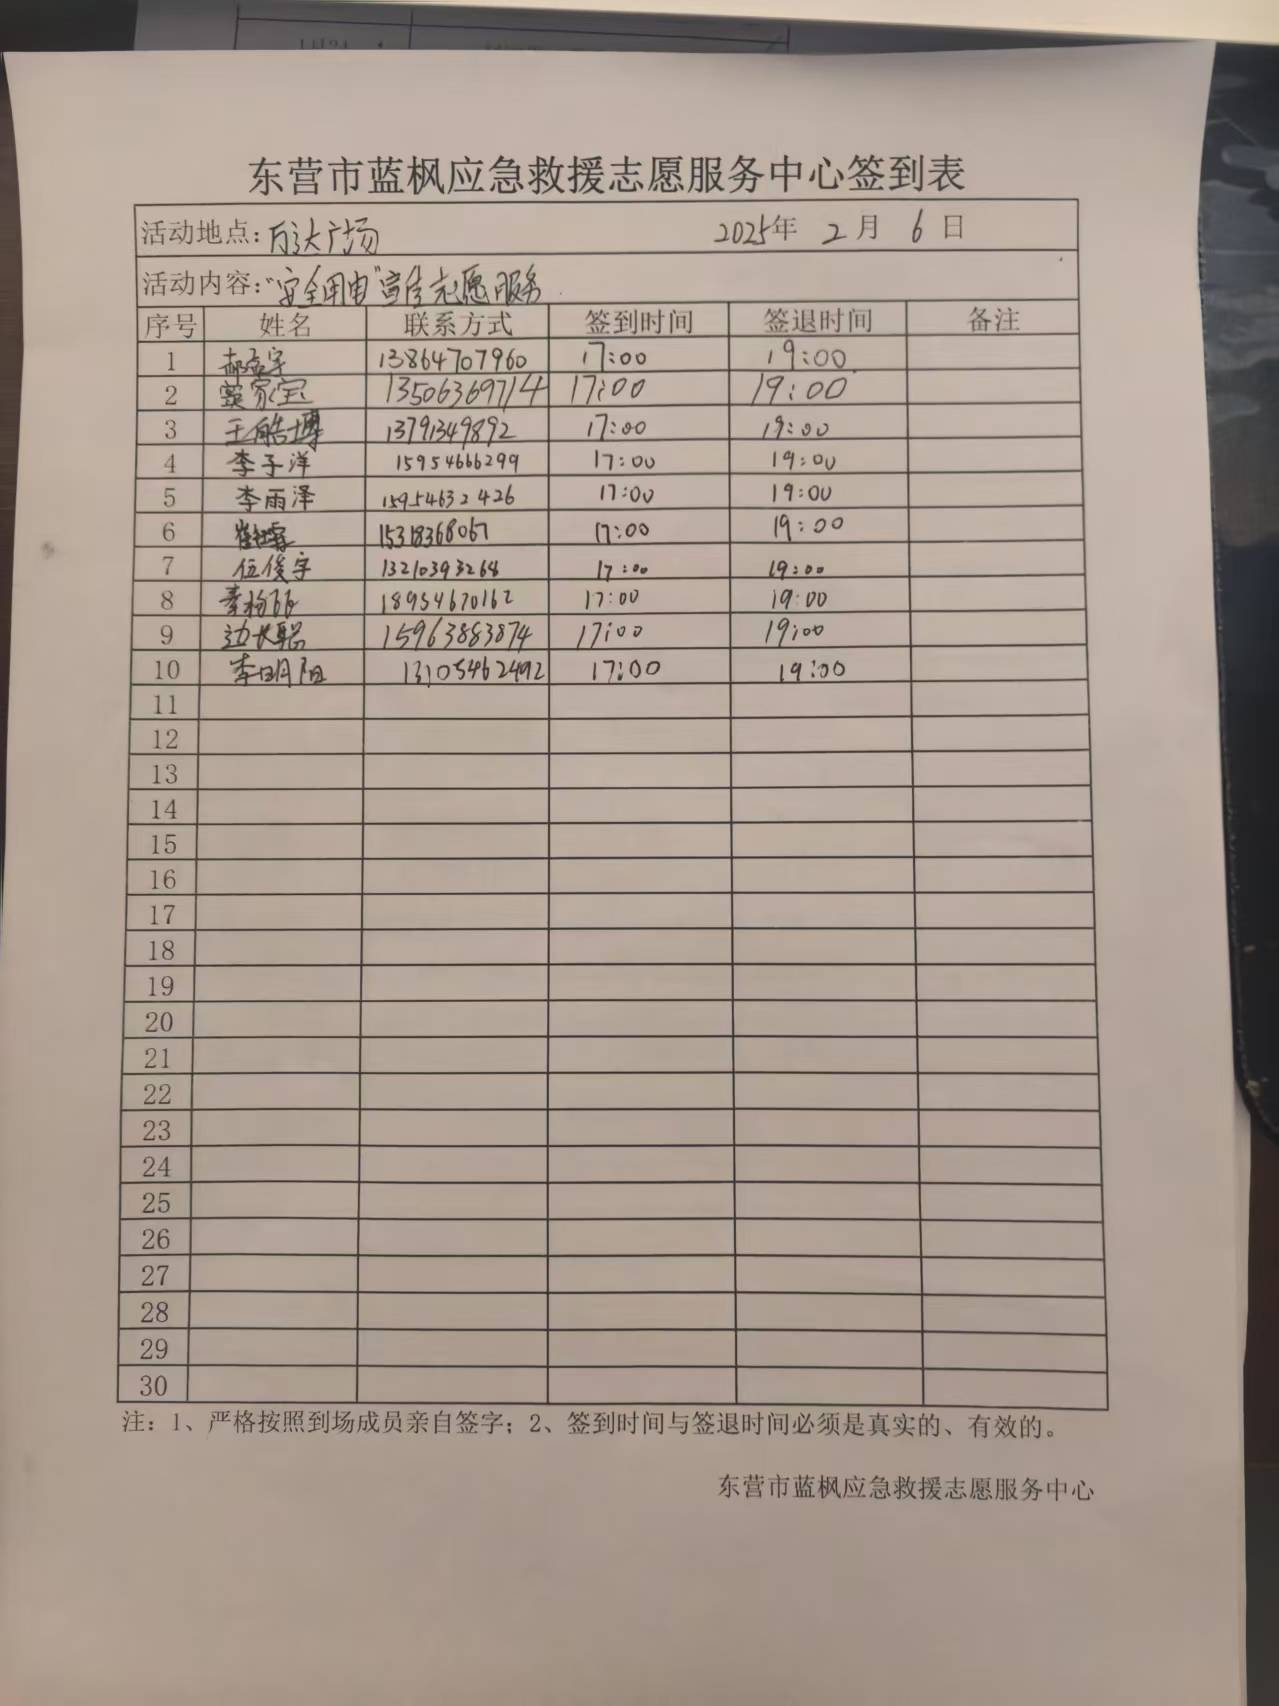 东营市蓝枫应急救援志愿服务中心签到表
活动地点:万达广场 2025年 2 月 6 日
活动内容:"安全用电"宣传志愿服务
序号 姓名 联系方式 签到时间 签退时间 备注
1 13864707960 17:00 19:00
2 窦家宝 13506369714 17:00 19:00
3 王皓博 13791349892 17:00 19:00
4 李子洋 15954666299 17:00 19:00
5 李雨泽 15954632426 17:00 19:00
6 15318368067 17:00 19:00
7 伍俊宇 13210393268 17:00 19:00
8 18954670162 17:00 19:00
9 边长聪 15963883874 17:00 19:00
10 李明阳 13105462492 17:00 19:00
11
12
13
14
15
16
17
18
19
20
21
22
23
24
25
26
27
28
29
30
注：1、严格按照到场成员亲自签字；2、签到时间与签退时间必须是真实的、有效的。
东营市蓝枫应急救援志愿服务中心